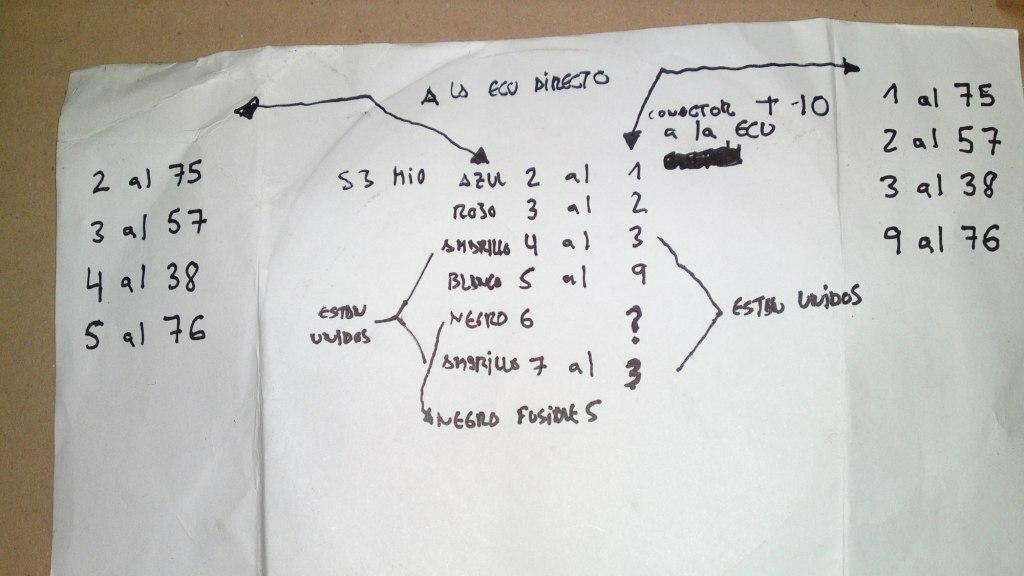 A LA ECU DIRECTO
CONECTOR T-10
a la ECU
2 al 75
3 al 57
4 al 38
5 al 76
S3 MIO
AZUL 2 al 1
ROJO 3 al 2
AMARILLO 4 al 3
BLANCO 5 al 9
NEGRO 6 ?
AMARILLO 7 al 3
NEGRO FUSIBLE 5
ESTAN
UNIDOS
ESTAN UNIDOS
1 al 75
2 al 57
3 al 38
9 al 76